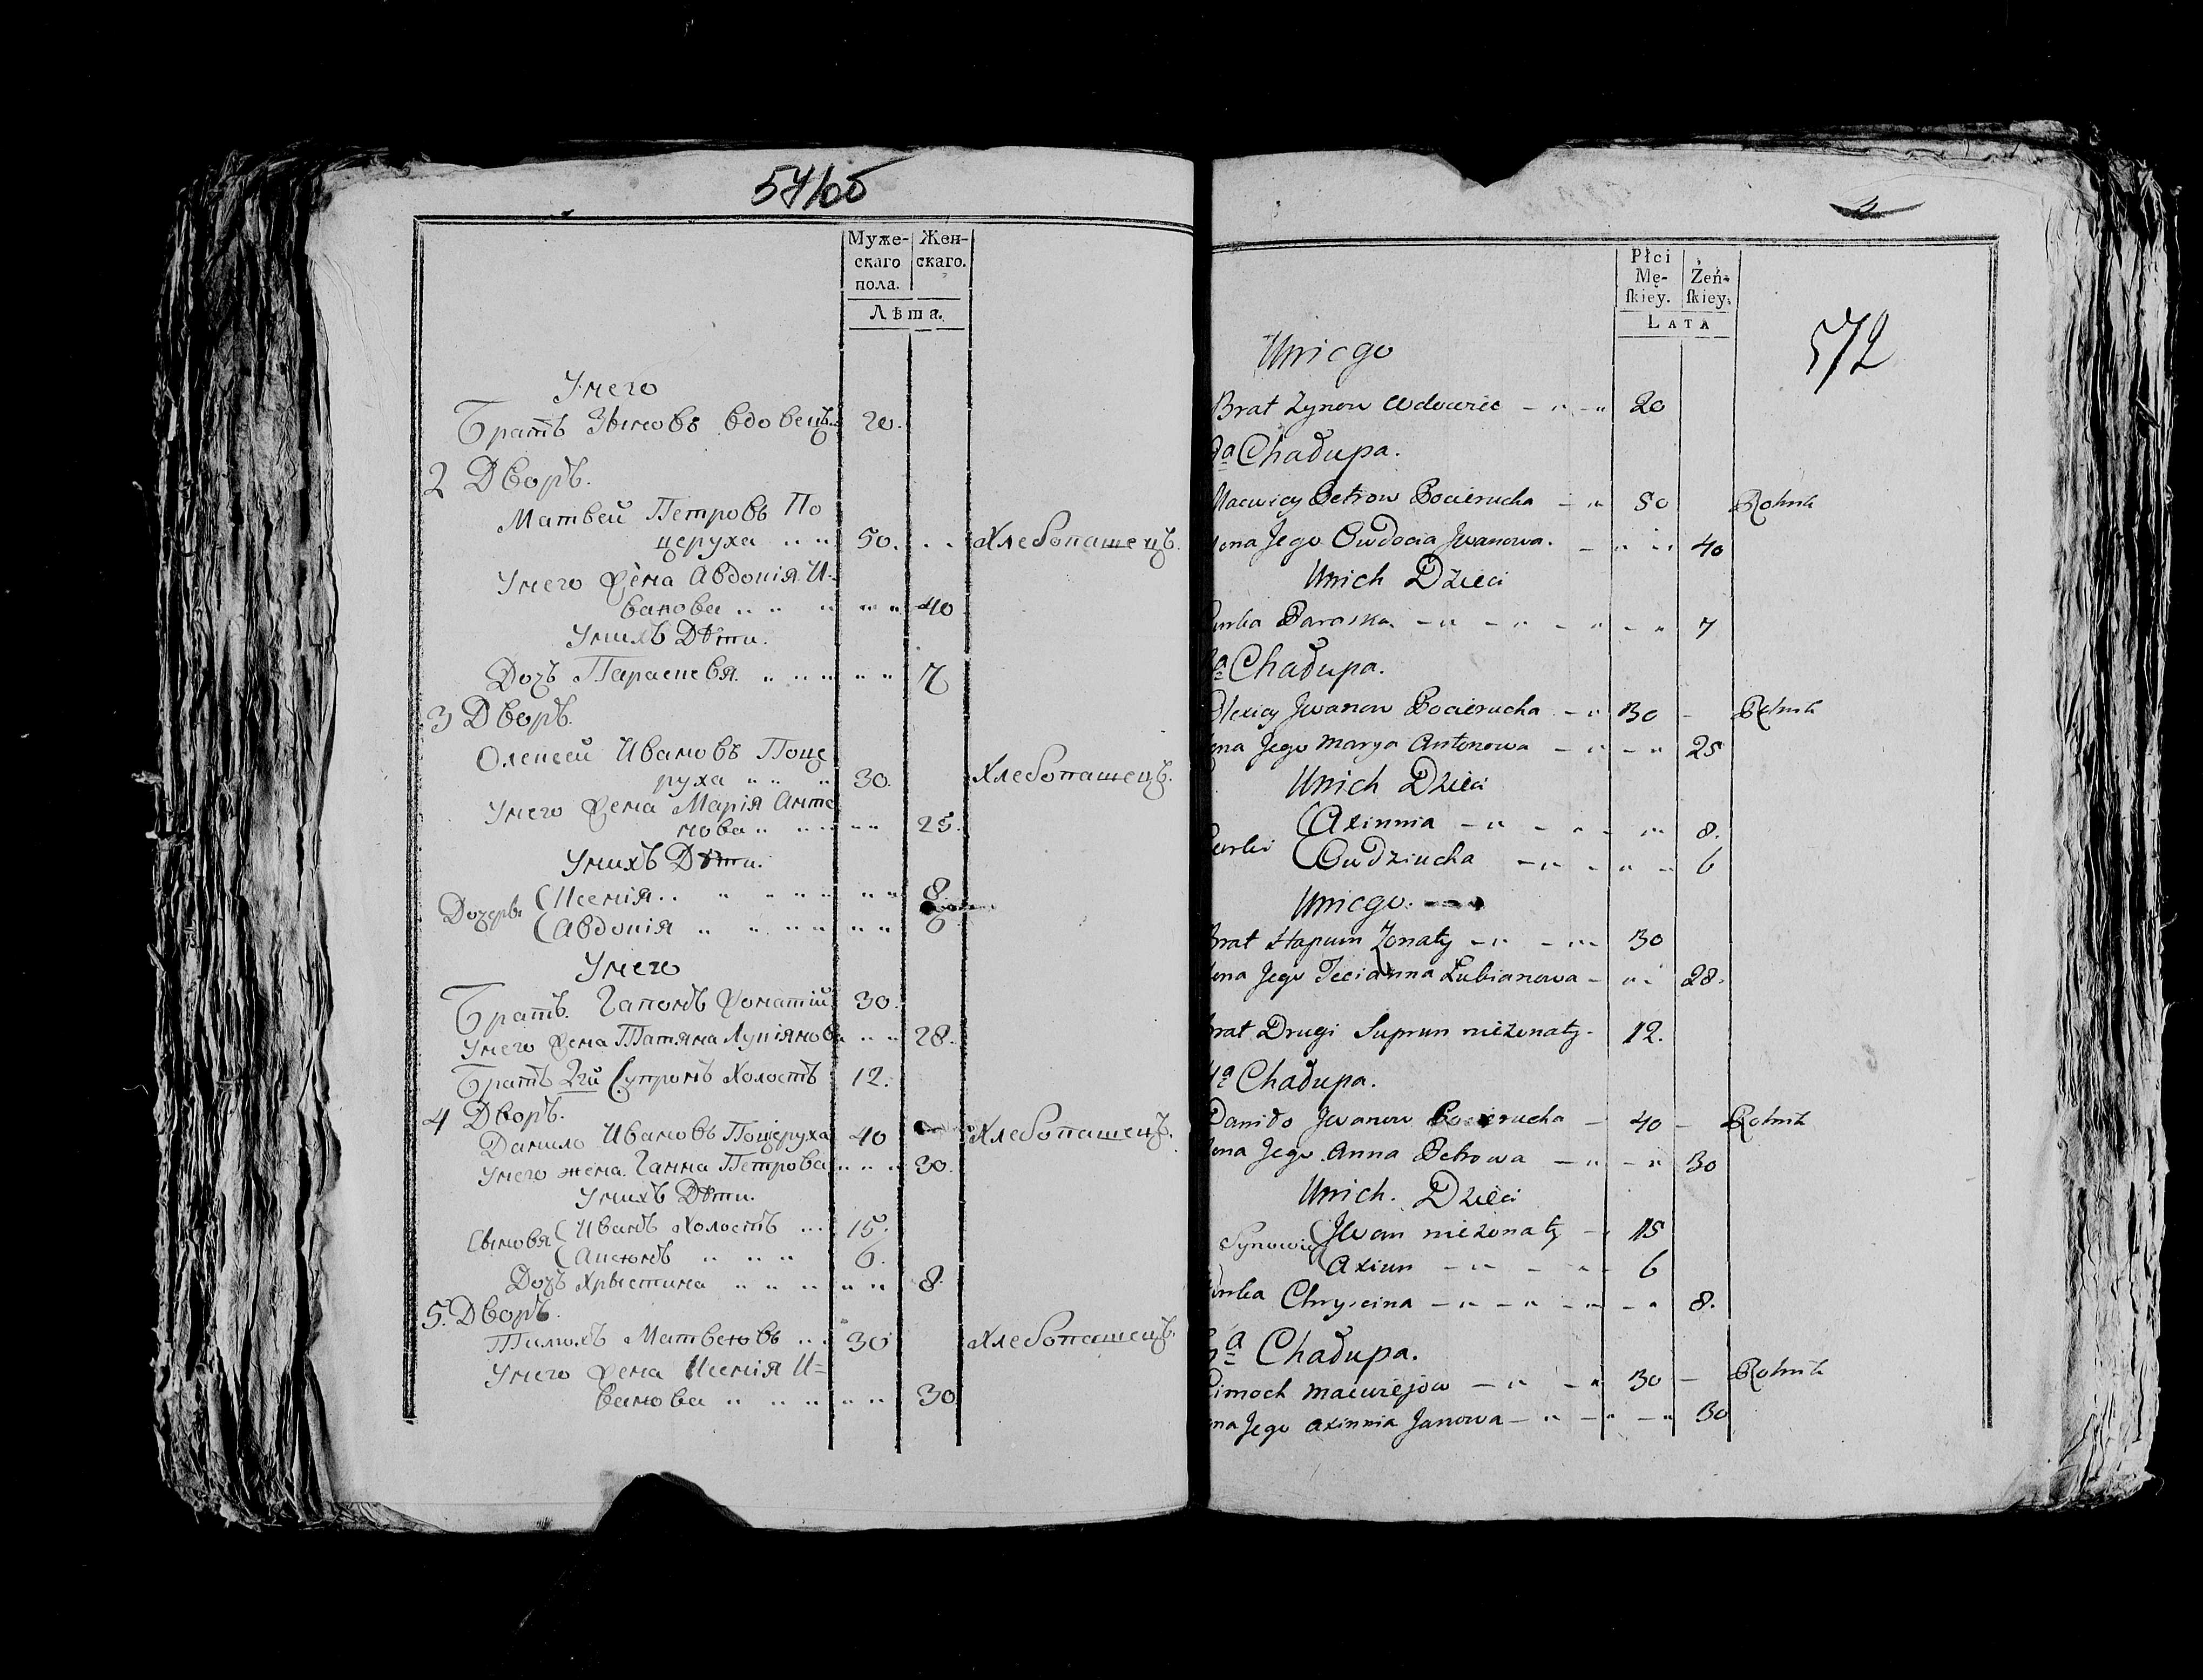 571об
Муже- Жен-
скаго скаго.
пола.
Лѣта.
Унего
Братъ Зыновъ вдовецъ 20.
2 Дворъ.
Матвей Петровъ По
церуха 50. Хлебопашецъ.
Унего жена Авдокія И-
ванова 40
Унихъ Дѣти.
Дочь Параскевя 7
3 Дворъ.
Олексей Ивановъ Поце
руха 30. Хлебопашецъ.
Унего жена Марія Анто
нова 25.
Унихъ Дѣти.
Дочерѣ (Ксенія 8
(Авдокія 6
Унего
Братъ Гапонъ жонатій 30.
Унего жена Татяна Лукіянова 28.
Братъ 2гй Супронъ Холостъ 12.
4 Дворъ.
Данило Ивановъ Поцеруха 40 Хлебопашецъ.
Унего жена Ганна Петрова 30.
Унихъ Дѣти.
Сыновя (Иванъ Холостъ 15.
(Аксюнъ 6.
Дочь Хрыстина 8.
5. Дворъ.
Тимохъ Матвеювъ 30 Хлебопашецъ.
Унего жена Ксенія И=
ванова 30
Płci
Mę- Żeń-
ſkiey. ſkiey.
LATA
572
Uniego
Brat Zynow Wdowiec 20
a Chałupa.
Maciviey Petrow Pocierucha 50 Rolnik
ona Jego Owdocia Jwanowa. 40
Unich Dzieci
Paraska 7
a Chałupa.
Olexiey Jwanow Pocierucha 30 Rolnik
ona Jego Marya Antonowa 25
Unich Dzieci
(Axinnia 8.
(Owdziucha 6
Uniego.
Brat Hapum Żonaty 30
ona Jego Tecianna Łubianowa 28.
Brat Drugi Suprun nieżonaty 12.
4a Chałupa.
Daniło Jwanow Pocierucha 40 Rolnik
ona Jego Anna Petrowa 30
Unich. Dzieci
Synowie (Jwan nieżonaty 15
(Axiun 6
Chryścina 8.
a Chałupa.
Timoch Maciviejow 30 Rolnik
ona Jego Axinnia Janowa 30